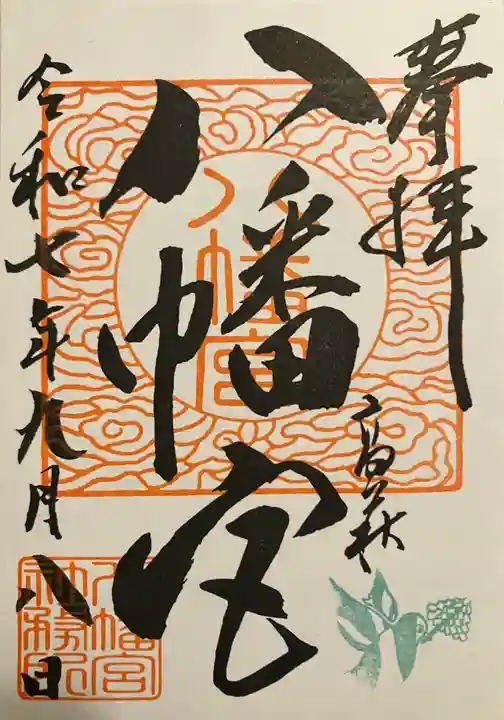 奉拝
高萩
八幡宮
令和七年九月八日
八幡宮
八幡宮
社務所